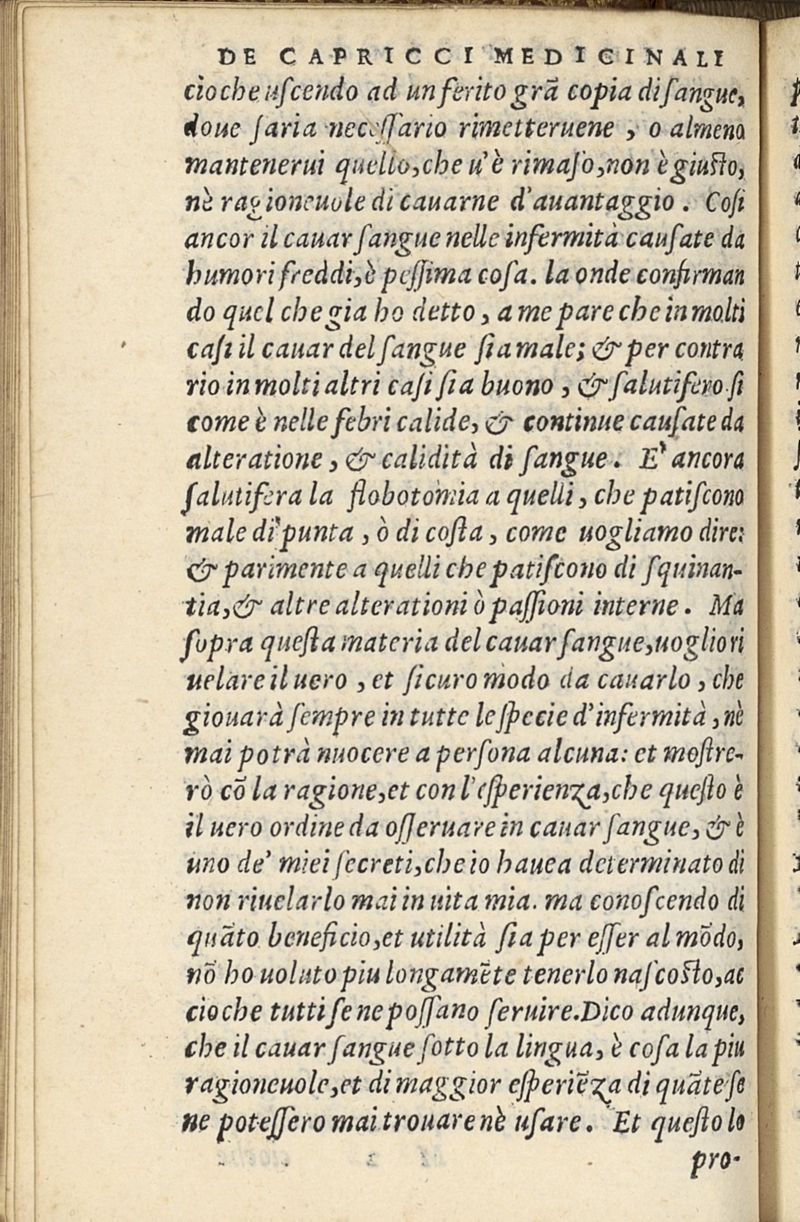 DE CAPRICCI MEDICINALI
cioche uſcendo ad un ferito grā copia di ſangue,
doue ſaria neceſſario rimetteruene, o almeno
mantenerui quello, che u'è rimaſo, non è giuſto,
nè ragioneuole di cauarne d'auantaggio. Coſi
ancor il cauar ſangue nelle infermità cauſate da
humori freddi, è peſſima coſa. la onde confirman
do quel che gia ho detto, a me pare che in molti
caſi il cauar del ſangue ſia male; & per contra
rio in molti altri caſi ſia buono, & ſalutifero ſi
come è nelle febri calide, & continue cauſate da
alteratione, & calidità di ſangue. E' ancora
ſalutifera la flobotomia a quelli, che patiſcono
male di punta, ò di coſta, come uogliamo dire:
& parimente a quelli che patiſcono di ſquinan-
tia, & altre alterationi ò paſſioni interne. Ma
ſopra queſta materia del cauar ſangue, uoglio ri
uelare il uero, et ſicuro modo da cauarlo, che
giouarà ſempre in tutte le ſpecie d'infermità, nè
mai potrà nuocere a perſona alcuna: et moſtre-
rò cō la ragione, et con l'eſperienza, che queſto è
il uero ordine da oſſeruare in cauar ſangue, & è
uno de' miei ſecreti, che io hauea determinato di
non riuelarlo mai in uita mia. ma conoſcendo di
quāto beneficio, et utilità ſia per eſſer al mōdo,
nō ho uoluto piu longamēte tenerlo naſcoſto, ac
cioche tutti ſe ne poſſano ſeruire. Dico adunque,
che il cauar ſangue ſotto la lingua, è coſa la piu
ragioneuole, et di maggior eſperiēza di quāte ſe
ne poteſſero mai trouare nè uſare. Et queſto lo
pro-